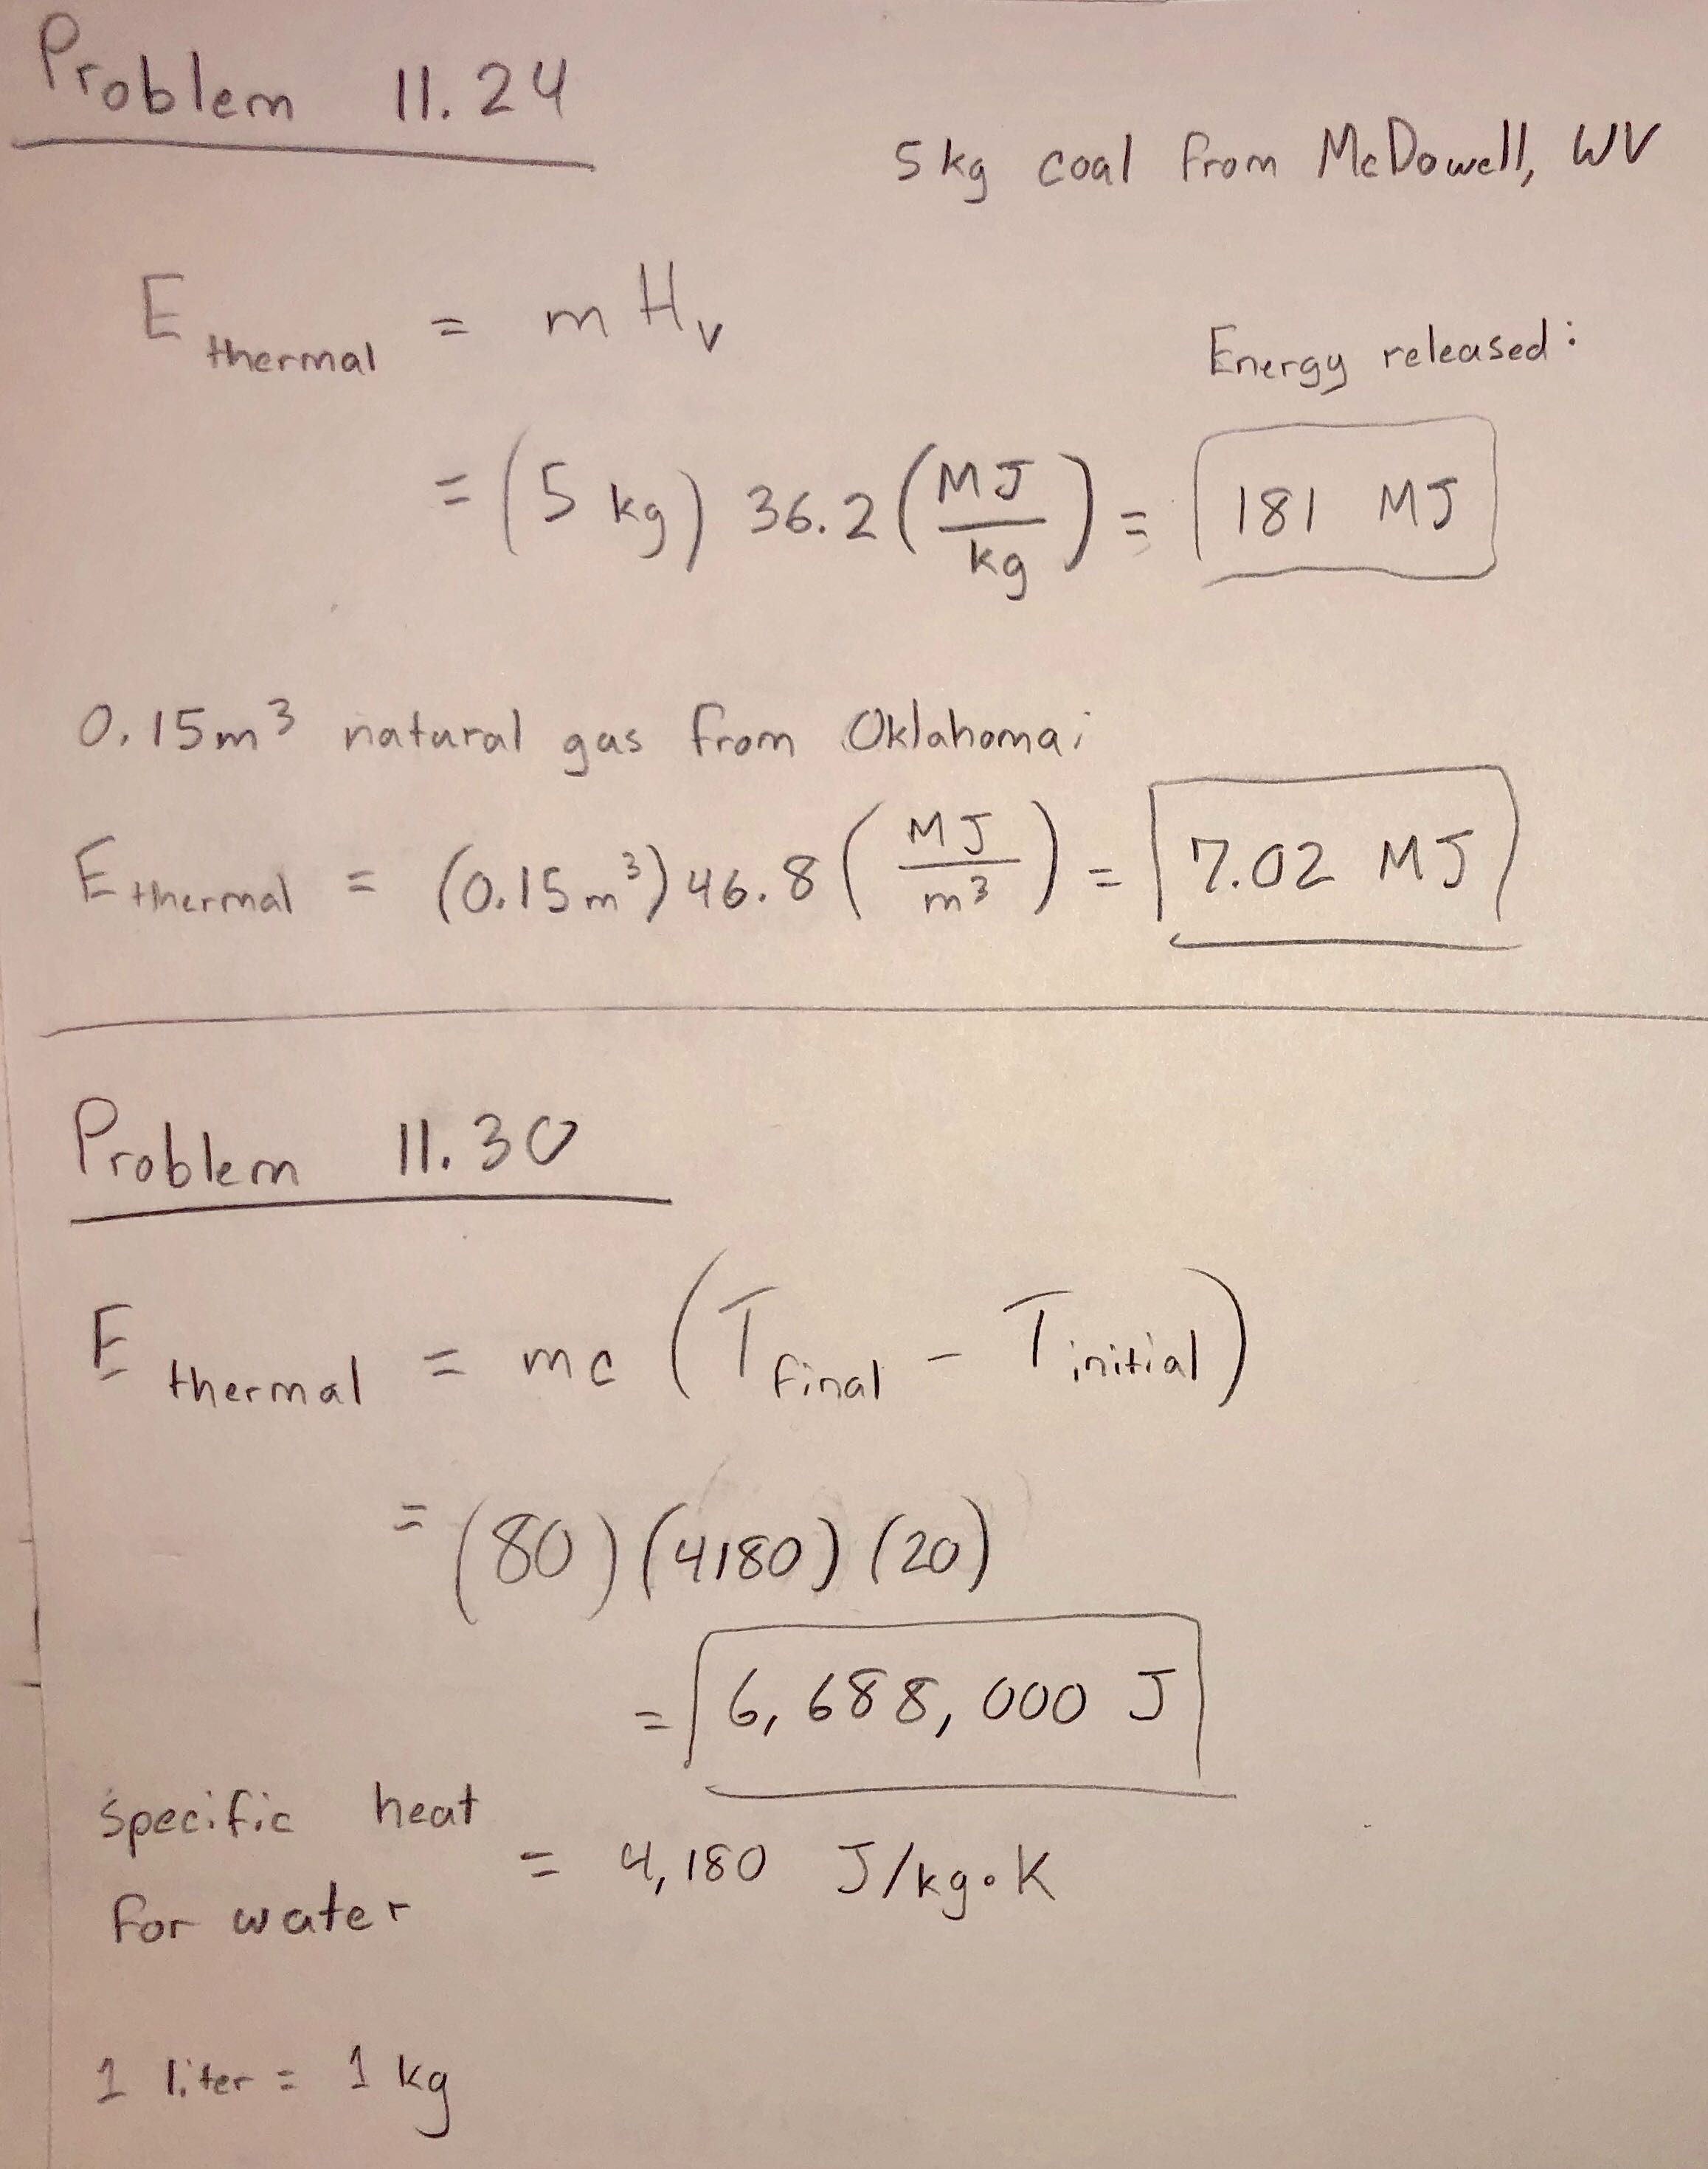 Problem 11.24
5 kg coal from McDowell, WV
E thermal = m Hv
Energy released:
= (5 kg) 36.2 (MJ/kg) = 181 MJ
0.15m³ natural gas from Oklahoma:
E thermal = (0.15m³) 46.8 (MJ/m³) = 7.02 MJ
Problem 11.30
E thermal = mc (T final - T initial)
= (80) (4180) (20)
= 6,688,000 J
specific heat
for water
= 4,180 J/kg·K
1 liter = 1 kg